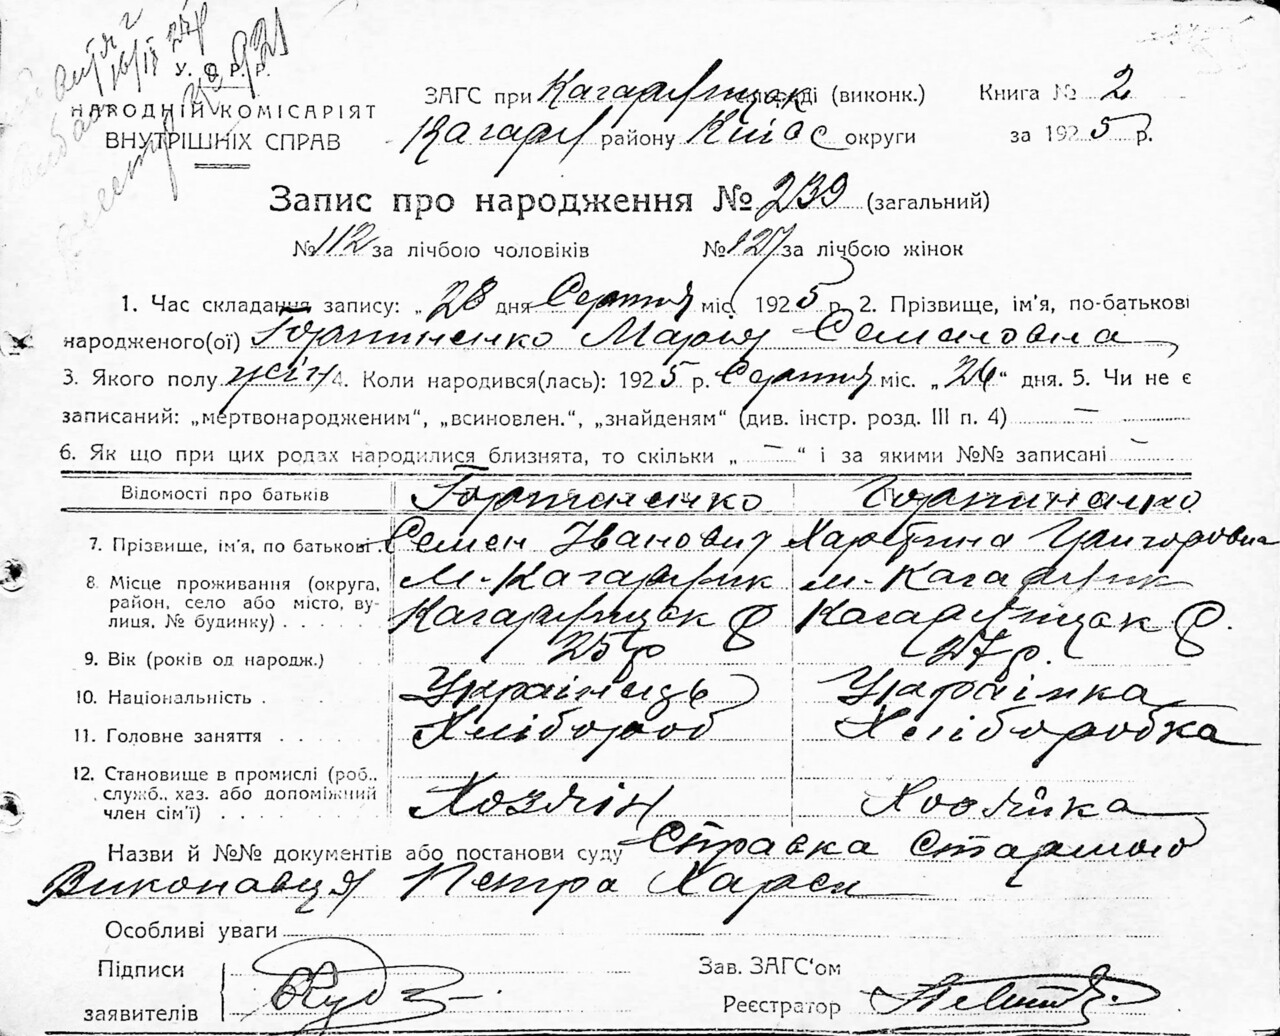 У. С. Р. Р.
НАРОДНІЙ КОМІСАРІЯТ
ВНУТРІШНІХ СПРАВ
ЗАГС при Кагарлицьк раді (виконк.) Книга № 2
Кагарл району Київс округи за 1925 р.
Запис про народження № 239 (загальний)
№ 112 за лічбою чоловіків № 127 за лічбою жінок
1. Час складання запису: „28 дня Серпня міс. 1925 р. 2. Прізвище, ім'я, по-батькові
народженого(ої) Мария Семеновна
3. Якого полу жін 4. Коли народився(лась): 1925 р. Серпня міс. „26“ дня. 5. Чи не є
записаний: „мертвонародженим“, „всиновлен.“, „знайденям“ (див. інстр. розд. III п. 4) —
6. Як що при цих родах народилися близнята, то скільки „ — “ і за якими №№ записані —
Відомості про батьків
7. Прізвище, ім'я, по батькові . Семен Іванович Харетина Григоровна
8. Місце проживання (округа, м. Кагарлик м. Кагарлик
район, село або місто, ву-
лиця, № будинку) . . . . . Кагарлицьк р Кагарлицьк р.
9. Вік (років од народж.) 25 р 27 р.
10. Національність . Українець Українка
11. Головне заняття . . . . . Хлібороб Хліборобка
12. Становище в промислі (роб.,
служб., хаз. або допоміжний
член сім'ї) . . . . . . . Хозяін Хозяйка
Назви й №№ документів або постанови суду Справка Старшого
Виконавця Петра
Особливі уваги
Підписи
заявителів
Зав. ЗАГС'ом
Реєстратор